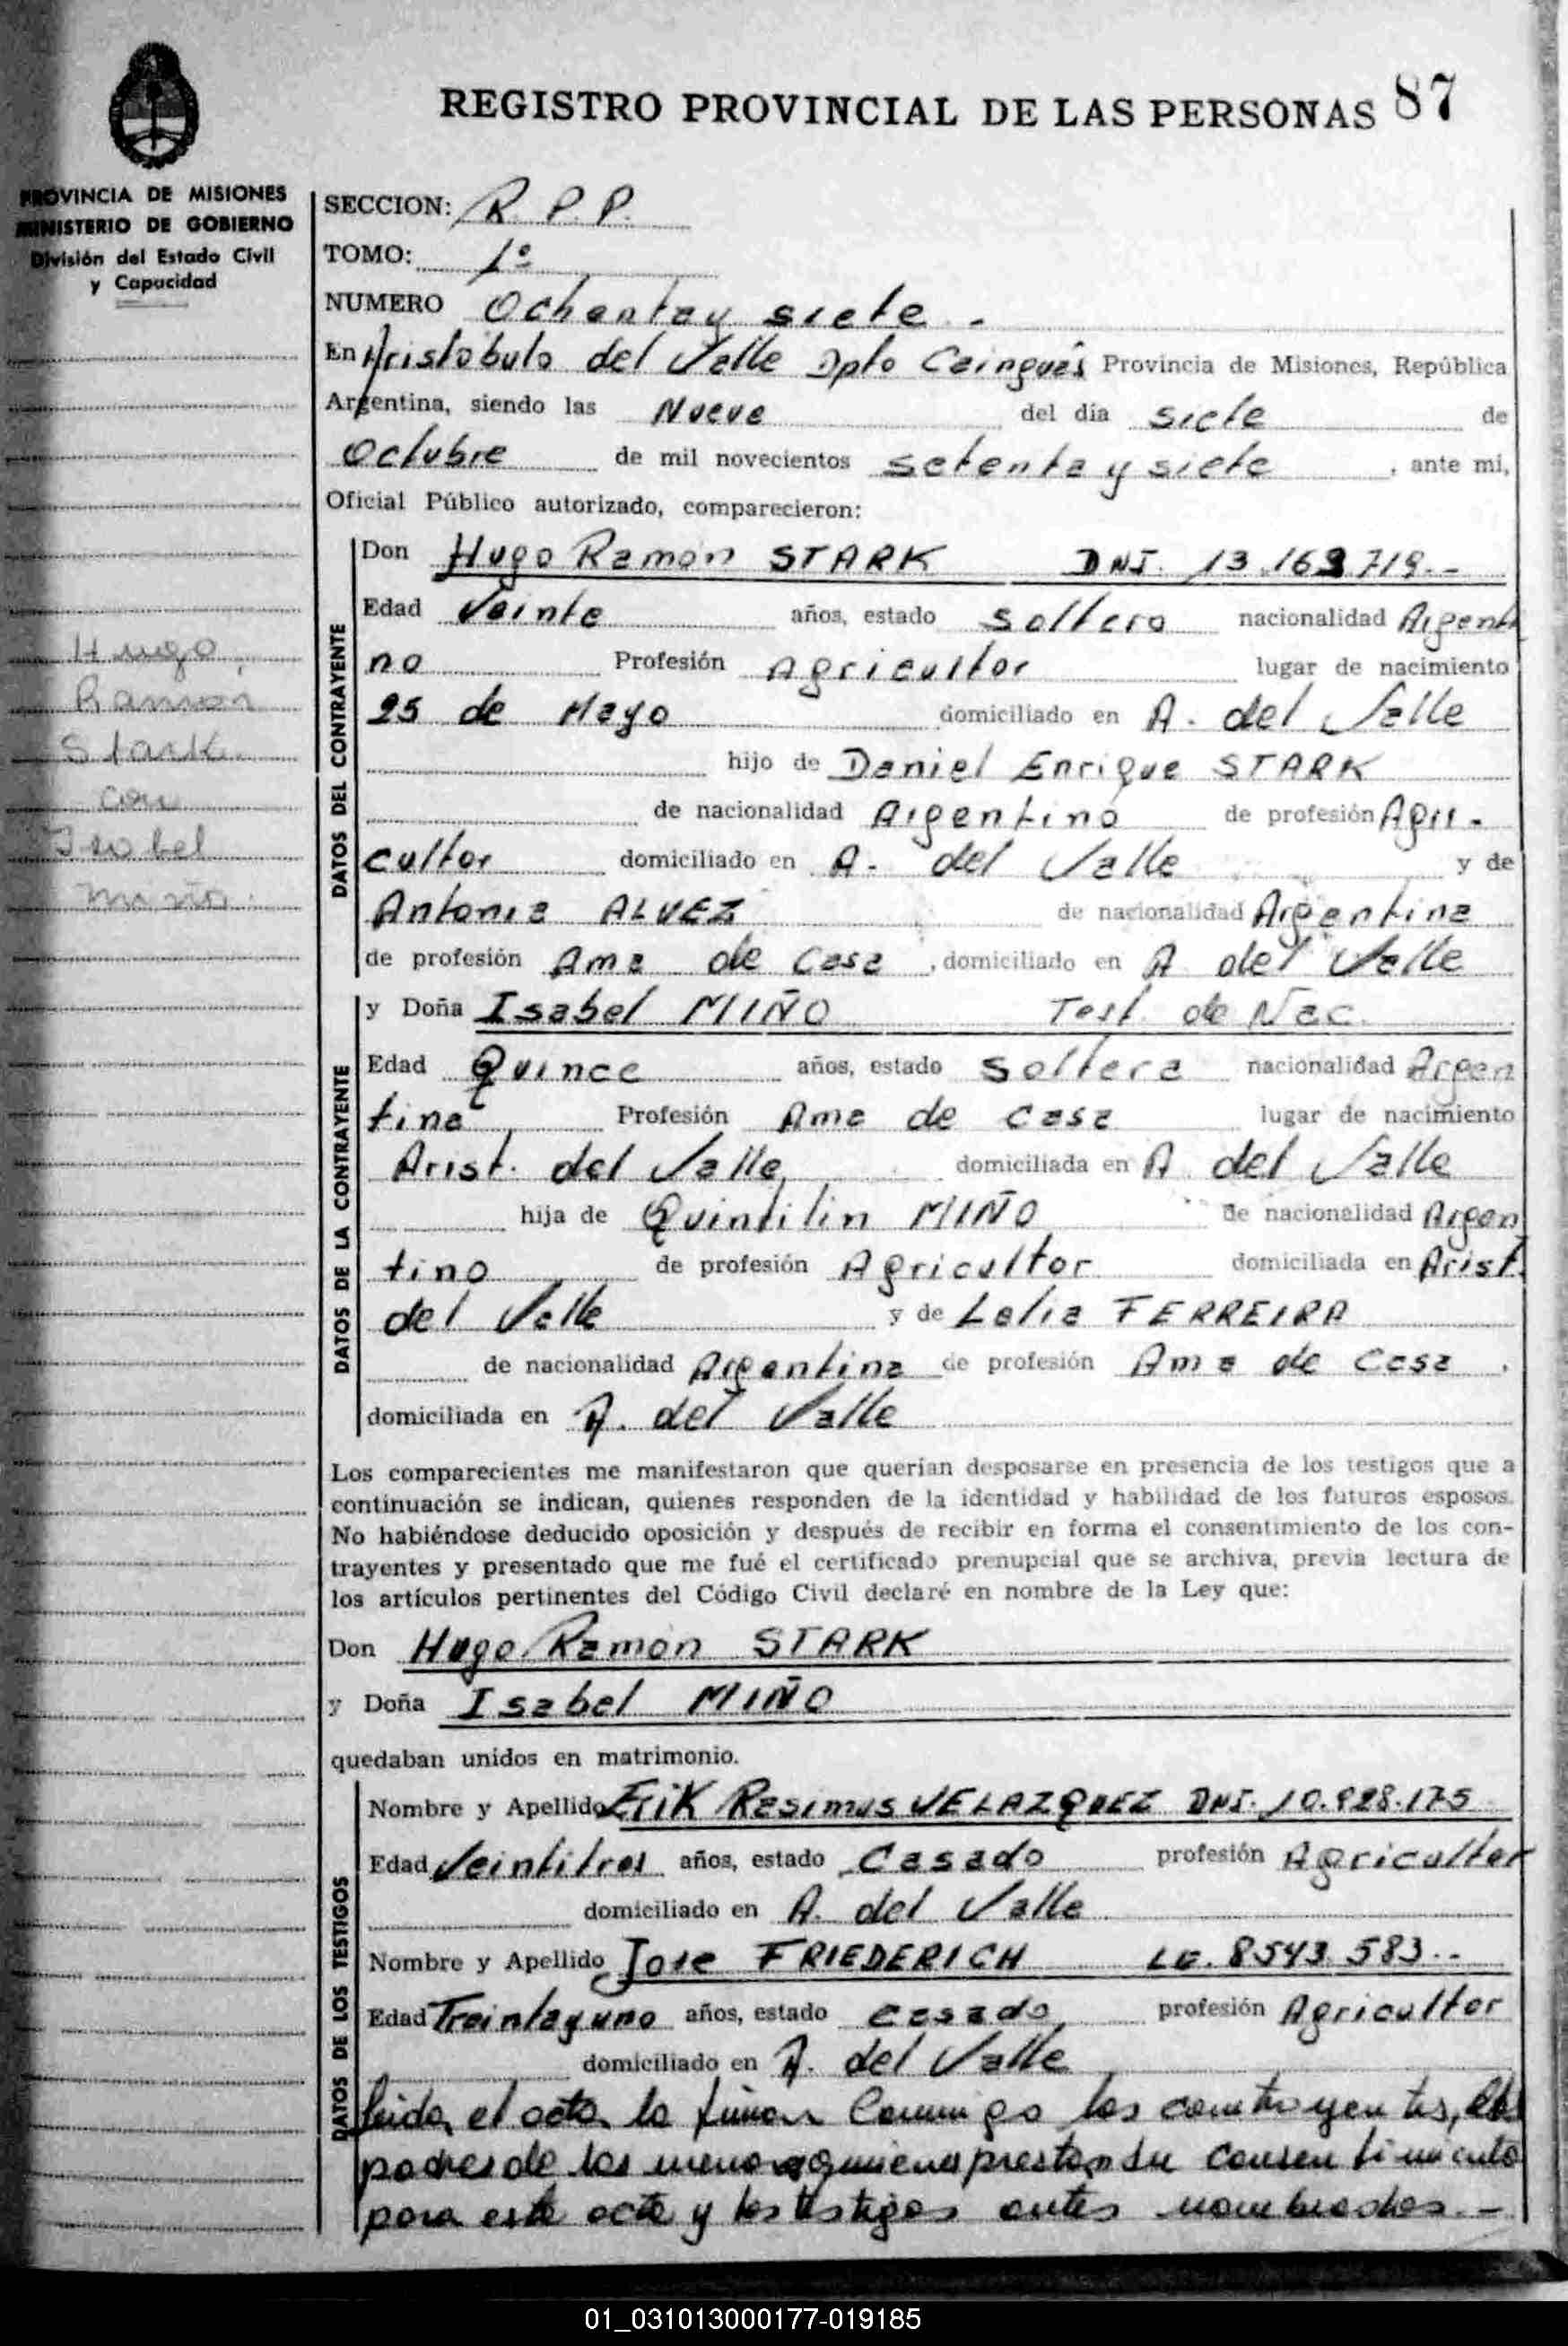 REGISTRO PROVINCIAL DE LAS PERSONAS 87
PROVINCIA DE MISIONES
MINISTERIO DE GOBIERNO
División del Estado Civil
y Capacidad
Hugo
Ramon
Stark
con
Isabel
Miño.
SECCION: R. P. P.
TOMO: 1º
NUMERO Ochenta y siete -
En Aristobulo del Valle Dpto Cainguas Provincia de Misiones, República
Argentina, siendo las Nueve del día siete de
Octubre de mil novecientos setenta y siete, ante mi,
Oficial Público autorizado, comparecieron:
DATOS DEL CONTRAYENTE
Don Hugo Ramon STARK DNI. 13.169.719.-
Edad Veinte años, estado soltero nacionalidad Argenti
no Profesión Agricultor lugar de nacimiento
25 de Mayo domiciliado en A. del Valle
hijo de Daniel Enrique STARK
de nacionalidad Argentino de profesión Agri-
cultor domiciliado en A. del Valle y de
Antonia ALVEZ de nacionalidad Argentina
de profesión Ama de Casa, domiciliado en A del Valle
DATOS DE LA CONTRAYENTE
y Doña Isabel MIÑO Test. de Nac.
Edad Quince años, estado Soltera nacionalidad Argen
tina Profesión Ama de Casa lugar de nacimiento
Arist. del Valle domiciliada en A. del Valle
hija de Quintilin MIÑO de nacionalidad Argen
tino de profesión Agricultor domiciliada en Arist.
del Valle y de Lelia FERREIRA
de nacionalidad Argentina de profesión Ama de Casa.
domiciliada en A. del Valle
Los comparecientes me manifestaron que querían desposarse en presencia de los testigos que a
continuación se indican, quienes responden de la identidad y habilidad de los futuros esposos.
No habiéndose deducido oposición y después de recibir en forma el consentimiento de los con-
trayentes y presentado que me fué el certificado prenupcial que se archiva, previa lectura de
los artículos pertinentes del Código Civil declaré en nombre de la Ley que:
Don Hugo Ramon STARK
y Doña Isabel MIÑO
quedaban unidos en matrimonio.
DATOS DE LOS TESTIGOS
Nombre y Apellido Erik Rasimus VELAZQUEZ DNI. 10.928.175
Edad Veintitres años, estado Casado profesión Agricultor
domiciliado en A. del Valle
Nombre y Apellido Jose FRIEDERICH LE. 8543.583.-
Edad Treintayuno años, estado casado profesión Agricultor
domiciliado en A. del Valle
Leida el acta la firman conmigo los contrayentes, los
padres de los menores quienes prestan su consentimiento
para este acto y los testigos antes nombrados.-
01_031013000177-019185